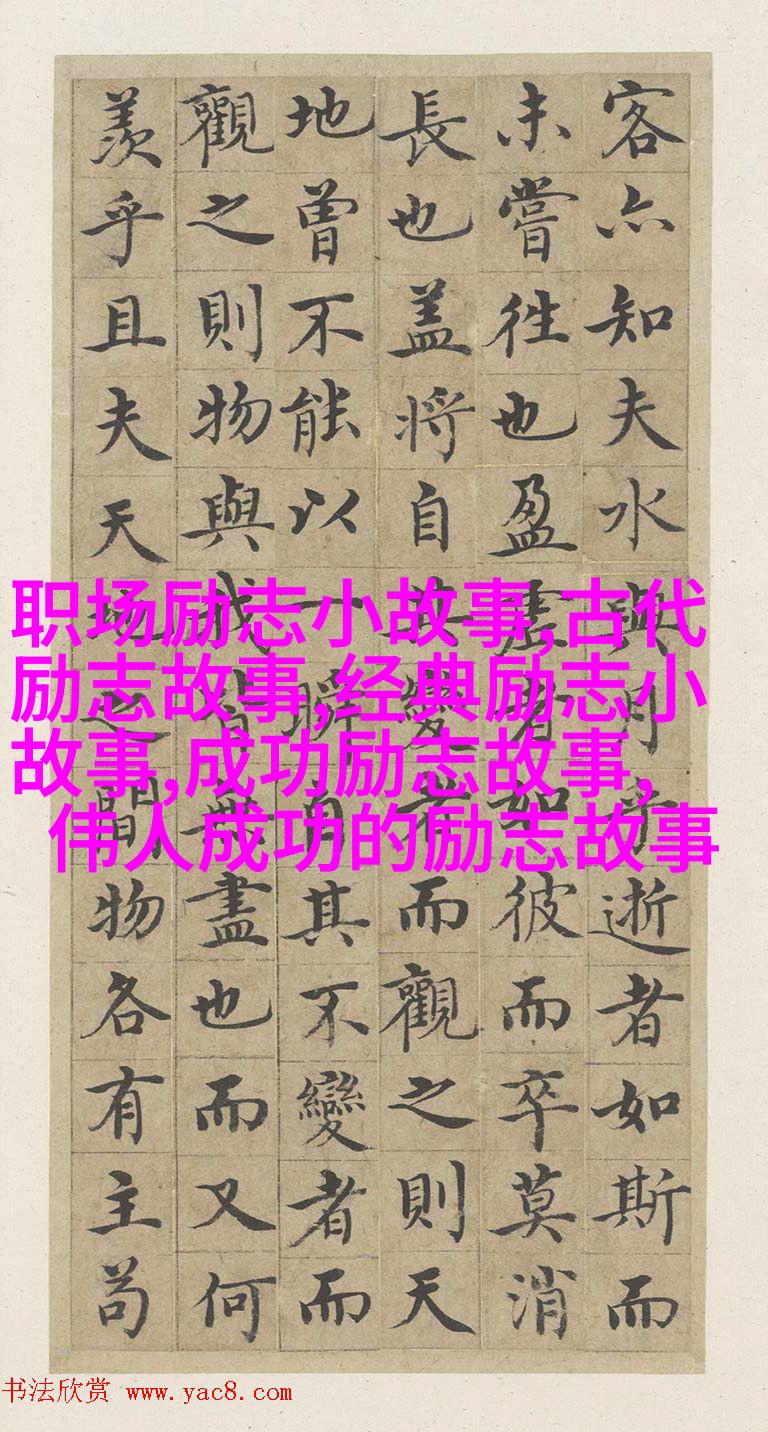 客亦知夫水與月乎逝者如斯而
未嘗往也盈虛者如彼而卒莫消
長也盖將自其變者而觀之則天
地曾不能以一瞬自其不變者而
觀之則物與我皆無盡也而又何
羨乎且夫天地之間物各有主苟
职场励志小故事,古代
励志故事,经典励志小
故事,成功励志故事,
伟人成功的励志故事
书法欣赏 www.yac8.com